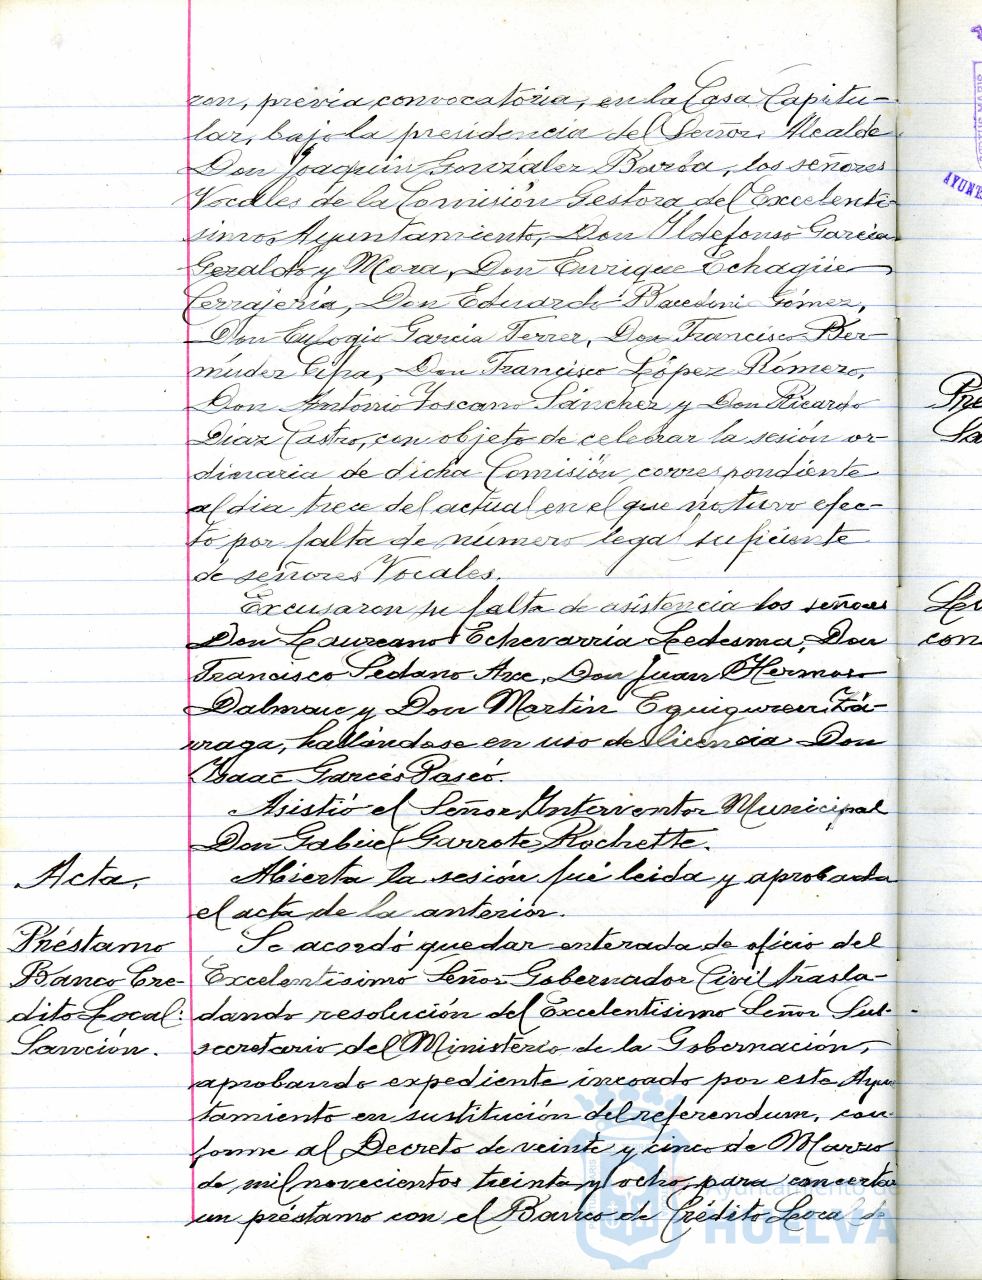 ron, previa convocatoria, en la Casa Capitu-
lar, bajo la presidencia del Señor Alcalde
Don Joaquín González Barba, los señores
Vocales de la Comisión Gestora del Excelentí-
simo Ayuntamiento, Don Ildefonso García
Geraldo y Mora, Don Enrique Echagüe
Cerrajería, Don Eduardo Bacedoni Gómez,
Don Eulogio García Ferrer, Don Francisco Ber-
múdez Cifra, Don Francisco López Rómero,
Don Antonio Toscano Sánchez y Don Ricardo
Díaz Castro, con objeto de celebrar la sesión or-
dinaria de dicha Comisión correspondiente
al dia trece del actual en el que no tuvo efec-
tó por falta de número legal suficiente
de señores Vocales.
Excusaron su falta de asistencia los señores
Don Laureano Echevarría Ledesma, Don
Francisco Sedano Arce, Don Juan Hermoso
Dalmau y Don Martín Eguiguren Zá-
rraga, hallándose en uso de licencia Don
Isaac Garcés Pascó.
Asistió el Señor Interventor Municipal
Don Gabriel Garrote Rochette.
Acta. Abierta la sesión fué leida y aprobada
el acta de la anterior.
Préstamo
Banco Cre-
dito Local:
Sanción.
Se acordó quedar enterada de oficio del
Excelentísimo Señor Gobernador Civil trasla-
dando resolución del Excelentisimo Señor Sub-
secretario del Ministerio de la Gobernación,
aprobando expediente incoado por este Ayun
tamiento en sustitución del referendum, con-
forme al Decreto de veinte y cinco de Marzo
de mil novecientos treinta y ocho, para concertar
un préstamo con el Banco de Crédito Local de
Ayuntamiento de
HUELVA
AYUNT
Pré
Sa
Le
con